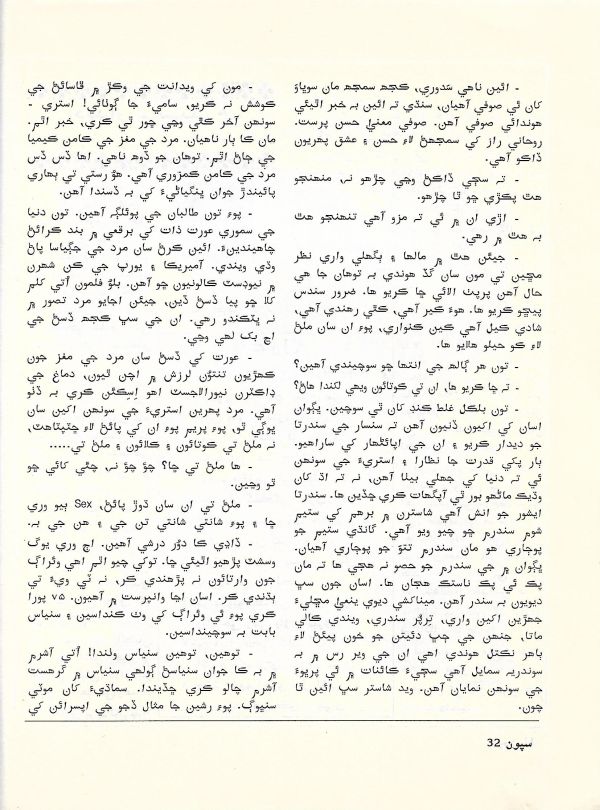 - ائين ناهي سَدوري، ڪجھ سمجھ مان سوڀاوَ
کان ئي صوفي آهيان، سنڌي ته ائين به خبر اٿيئي
هوندائي صوفي آهن. صوفي معنيٰ حسن پرست.
روحاني راز کي سمجھڻ لاءِ حسن ۽ عشق پهريون
ڏاڪو آهي.
- ته سڄي ڏاڪڻ وڃي چڙهو نه، منهنجو
هٿ پڪڙي ڇو ٿا چڙهو.
- اڙي ان ۾ ئي ته مزو آهي تنهنجو هٿ
به هٿ ۾ رهي.
- جيئن هٿ ۾ مالها ۽ ٻگهلي واري نظر
مڇين تي مون سان گڏ هوندي به توهان جا هي
حال آهن پرپٺ الائي ڇا ڪريو ها. ضرور سندس
پيڇو ڪريو ها. هوءَ ڪير آهي، ڪٿي رهندي آهي،
شادي ڪيل آهي ڪين ڪنواري، پوءِ ان سان ملڻ
لاءِ ڪو حيلو هلايو ها.
- تون هر ڳالھ جي انتها ڇو سوچيندي آهين؟
- ته ڇا ڪريو ها، ان تي ڪوتائون ويهي لکندا هاڻ؟
- تون بلڪل غلط ڪنڊ کان ٿي سوچين. ڀڳوان
اسان کي اکيون ڏنيون آهن ته سنسار جي سندرتا
جو ديدار ڪريو ۽ ان جي اپائڻهار کي ساراهيو.
بار پکي قدرت جا نظارا ۽ استريءَ جي سونهن
ئي ته دنيا کي جهلي بيٺا آهن، نه ته اڌ کان
وڌيڪ ماڻهو بور ٿي آپگهات ڪري ڇڏين ها. سندرتا
ايشور جو انش آهي شاسترن ۾ برهم کي ستيم
شوم سندرم جو چيو ويو آهي. گانڌي ستيم جو
پوڄاري هو مان سندرم تتوَ جو پوڄاري آهيان.
ڀڳوان ۾ جي سندرم جو حصو نه هجي ها ته مان
پڪ ئي پڪ ناستڪ هجان ها. اسان جون سڀ
ديويون به سندر آهن. ميناڪشي ديوي يعنيٰ مڇليءَ
جهڙين اکين واري، تِرپُر سندري، ويندي ڪالي
ماتا، جنهن جي ڄڀ دئيتن جو خون پيئڻ لاءِ
ٻاهر نڪتل هوندي آهي ان جي وير رس ۾ به
سوندريه سمايل آهي سڄيءَ ڪائنات ۾ ئي پريوءَ
جي سونهن نمايان آهن. ويد شاستر سڀ ائين ٿا
چون.
- مون کي ويدانت جي وڪڙ ۾ ڦاسائڻ جي
ڪوشش نه ڪريو، ساميءَ جا ڳوٺائي! استري -
سونهن آخر ڪٿي وڃي چور ٿي ڪري، خبر اٿم.
مان ڪا ٻار ناهيان. مرد جي مغز جي ڪامن ڪيميا
جي ڄاڻ اٿم. توهان جو ڏوھ ناهي. اها ڏس ڏس
مرد جي ڪامن ڪمزوري آهي. هوُ رستي تي ٻهاري
پائيندڙ جوان ڀنگياڻيءَ کي به ڏسندا آهن.
- پوءِ تون طالبان جي پوئلڳ آهين. تون دنيا
جي سموري عورت ذات کي برقعي ۾ بند ڪرائڻ
چاهيندينءَ. ائين ڪرڻ سان مرد جي جڳياسا پاڻ
وڌي ويندي. آمريڪا ۽ يورپ جي ڪن شهرن
۾ نيوڊسٽ ڪالونيون ڇو آهن. بلوُ فلمون اُتي کلم
کلا ڇو پيا ڏسڻ ڏين، جيئن اجايو مرد تصور ۾
نه ڀٽڪندو رهي. ان جي سڀ ڪجھ ڏسڻ جي
اڃ بک لهي وڃي.
- عورت کي ڏسڻ سان مرد جي مغز جون
ڪهڙيون تنتوُن لرزش ۾ اچن ٿيون، دماغ جي
ڊاڪٽرن نيورالاجسٽ اهو اِسڪئن ڪري به ڏٺو
آهي. مرد پهرين استريءَ جي سونهن اکين سان
ڀوڳي ٿو، پوءِ پريم پوءِ ان کي پائڻ لاءِ ڇٽپٽاهٽ،
نه ملڻ تي ڪوتائون ۽ ڪلائون ۽ ملڻ تي.....
- ها ملڻ تي ڇا؟ چؤ چؤ نه، چڻي کائي ڇو
ٿو وڃين.
- ملڻ تي ان سان ڏوڙ پائڻ، Sex ٻيو وري
ڇا ۽ پوءِ شانتي شانتي تن جي ۽ هن جي به.
- ڏاڍي ڪا دوُر درشي آهين. اڄ وري يوگ
وسشت پڙهيو اٿيئي ڇا. توکي چيو اٿم اهي وئراڳ
جون وارتائون نه پڙهندي ڪر، نه ٽي ويءَ تي
ٻڌندي ڪر. اسان اڃا وانپرست ۾ آهيون. ٧٥ پورا
ڪري پوءِ ئي وئراڳ کي وٺ ڪنداسين ۽ سنياس
بابت به سوچينداسين.
- توهين، توهين سنياس ولندا! اُتي آشرم
۾ به ڪا جوان سنياسڻ ڳولهي سنياس ۾ گرهست
آشرم چالو ڪري ڇڏيندا. سماڌيءَ کان موٽي
سنيوڳ. پوءِ رشين جا مثال ڏجو جي اپسرائن کي
سپون 32